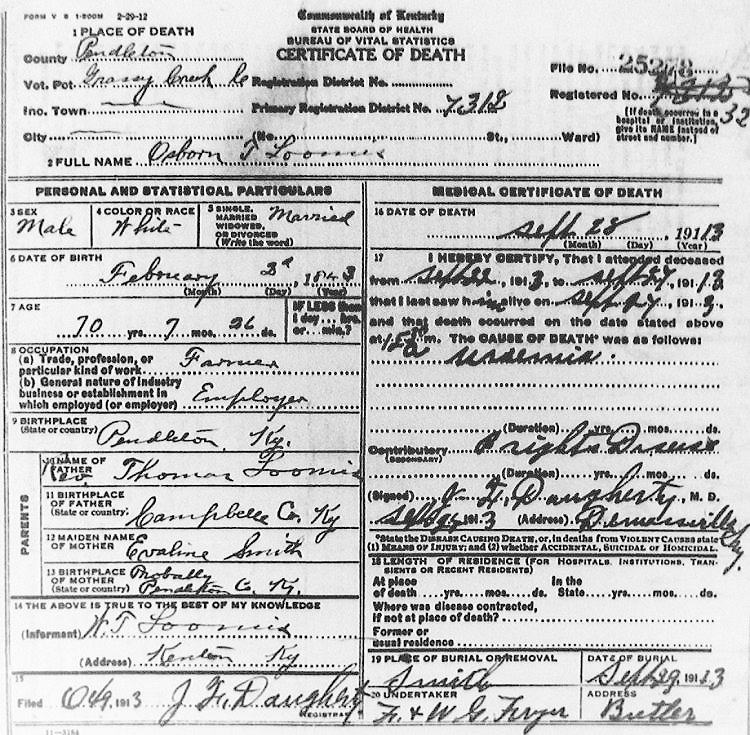 FORM V S 1-500M 2-29-12
Commonwealth of Kentucky
STATE BOARD OF HEALTH
BUREAU OF VITAL STATISTICS
CERTIFICATE OF DEATH
1 PLACE OF DEATH
County Pendleton
Vot. Pct Grassy Creek
Inc. Town
City (No. St., Ward)
Registration District No.
Primary Registration District No. 7312
File No. 25378
Registered No. 32
[If death occurred in a hospital or institution, give its NAME instead of street and number.]
2 FULL NAME Osborn T Loomis
PERSONAL AND STATISTICAL PARTICULARS
3 SEX Male
4 COLOR OR RACE White
5 SINGLE, MARRIED WIDOWED, OR DIVORCED (Write the word) Married
6 DATE OF BIRTH
February 2d, 1843
(Month) (Day) (Year)
7 AGE
70 yrs. 7 mos. 26 ds.
IF LESS than 1 day... hrs. or... min.?
8 OCCUPATION
(a) Trade, profession, or particular kind of work Farmer
(b) General nature of industry business or establishment in which employed (or employer) Employer
9 BIRTHPLACE
(State or country) Pendleton, Ky.
PARENTS
10 NAME OF FATHER Rev. Thomas Loomis
11 BIRTHPLACE OF FATHER (State or country) Campbelle Co. Ky
12 MAIDEN NAME OF MOTHER Evaline Smith
13 BIRTHPLACE OF MOTHER (State or country) Probally Pendleton Co. Ky.
14 THE ABOVE IS TRUE TO THE BEST OF MY KNOWLEDGE
(Informant) W. T Loomis
(Address) Kenton Ky
15
Filed 1913 J. F. Daugherty
REGISTRAR
11-3184
MEDICAL CERTIFICATE OF DEATH
16 DATE OF DEATH
Sept. 28, 1913
(Month) (Day) (Year)
17 I HEREBY CERTIFY, That I attended deceased
from Sept 22 1913 to Sept 27, 1913
that I last saw him alive on Sept. 27, 1913
and that death occurred on the date stated above
at m. The CAUSE OF DEATH* was as follows:
uraemia
(Duration) yrs. mos. ds.
Contributory (SECONDARY) Brights Disease
(Duration) yrs. mos. ds.
(Signed) J. F. Daugherty, M. D.
1913 (Address) Demossville Ky.
*State the DISEASE CAUSING DEATH, or, in deaths from VIOLENT CAUSES state
(1) MEANS OF INJURY; and (2) whether ACCIDENTAL, SUICIDAL OR HOMICIDAL.
18 LENGTH OF RESIDENCE (FOR HOSPITALS, INSTITUTIONS, TRANSIENTS OR RECENT RESIDENTS)
At place of death yrs. mos. ds. In the State yrs. mos. ds.
Where was disease contracted, if not at place of death?
Former or usual residence
19 PLACE OF BURIAL OR REMOVAL Smith
DATE OF BURIAL Sept 29, 1913
20 UNDERTAKER F. & W G. Fryer
ADDRESS Butler